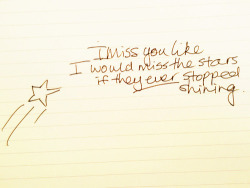 I miss you like
I would miss the stars
if they ever stopped
shining.